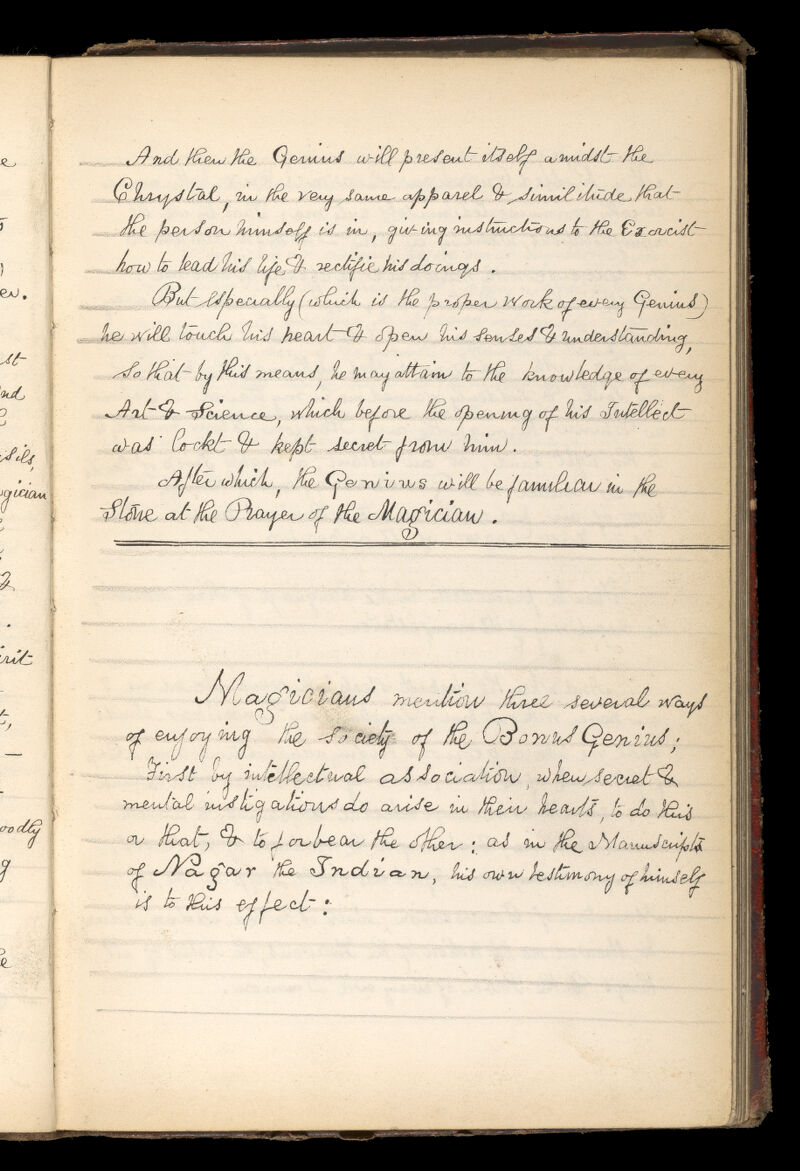 And then the Genius will present itself amidst the
Chrystal, in the very same apparel & similitude that
the person himself is in, giving instructions to the Exorcist
how to lead his life & rectifie his doings.
But especially (which is the proper work of every Genius)
he will touch his heart & open his senses & understanding,
so that by this means, he may attain to the knowledge of every
Art & Science, which before the opening of his Intellect
was lockt & kept secret from him.
After which, the Genius will be familiar in the
Stone at the Prayer of the Magician.
Magicians mention three several ways
of enjoying the society of the Bonus Genius;
First by intellectual association, when secret &
mental instigations do arise in their hearts, to do this
or that, & to forbear the other: as in the Manuscripts
of Nagar the Indian, his own testimony of himself
is to this effect: